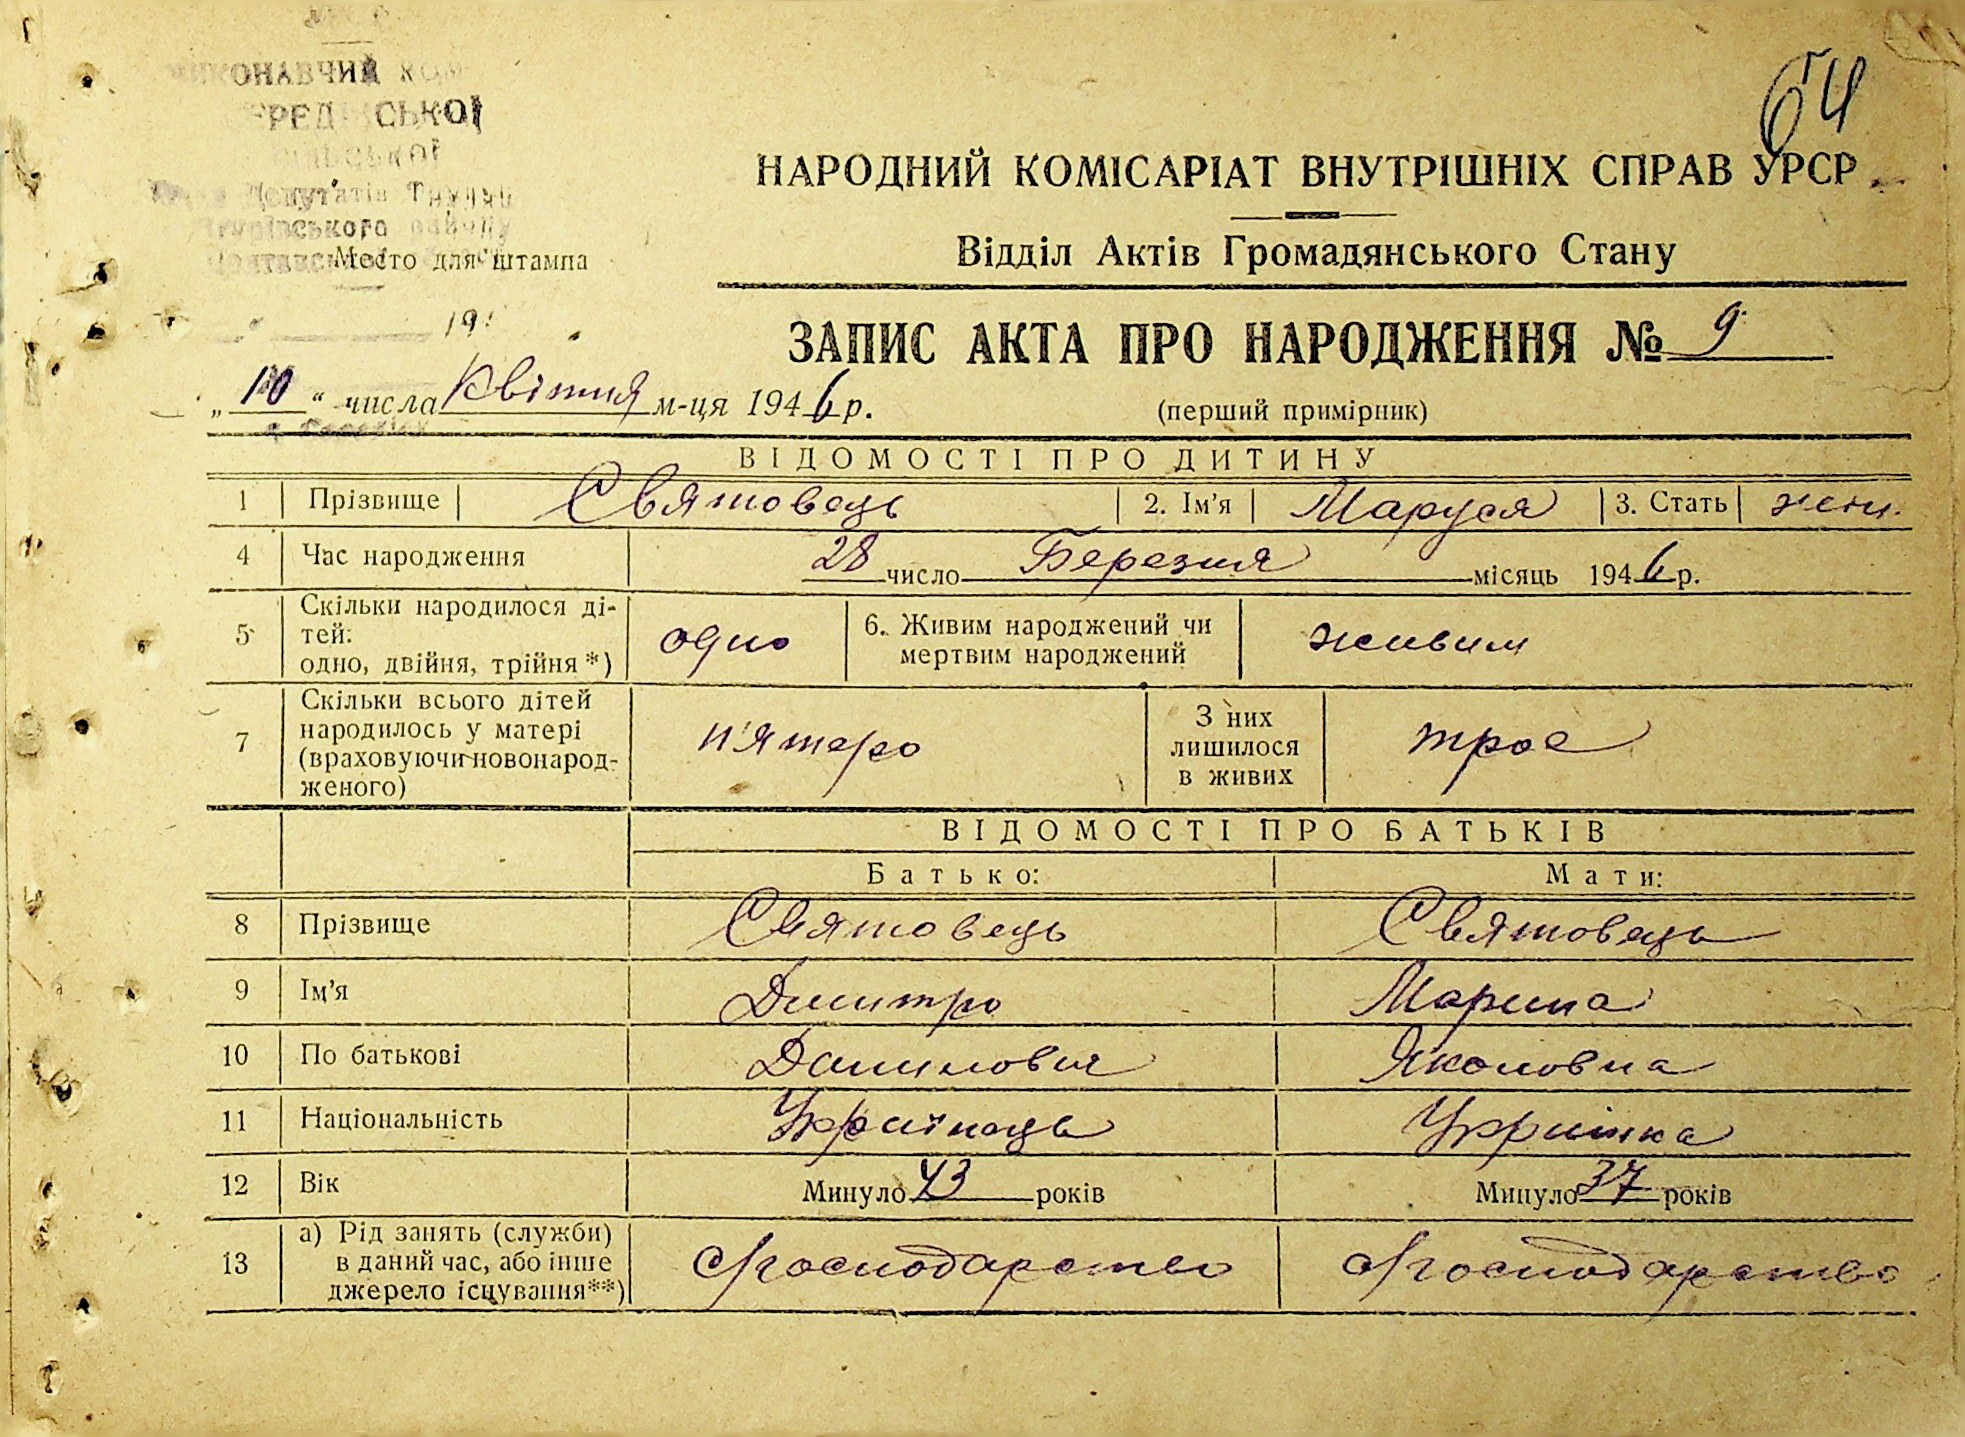 64
ВИКОНАВЧИЙ КОМ
СЬКОЇ
Депутатів Трудящ
ського району
Место для штампа
НАРОДНИЙ КОМІСАРІАТ ВНУТРІШНІХ СПРАВ УРСР
Відділ Актів Громадянського Стану
ЗАПИС АКТА ПРО НАРОДЖЕННЯ № 9
„10“ числа Квітня м-ця 1946 р.
(перший примірник)
ВІДОМОСТІ ПРО ДИТИНУ
1 Прізвище Святовець 2. Ім'я Маруся 3. Стать жін.
4 Час народження 28 число Березня місяць 1946 р.
5 Скільки народилося ді-
тей:
одно, двійня, трійня *) одно 6. Живим народжений чи
мертвим народжений живим
7 Скільки всього дітей
народилось у матері
(враховуючи новонарод-
женого) п'ятеро З них
лишилося
в живих троє
ВІДОМОСТІ ПРО БАТЬКІВ
Батько: Мати:
8 Прізвище Святовець Святовець
9 Ім'я Дмитро Марина
10 По батькові Данилович Яколовна
11 Національність Українець Українка
12 Вік Минуло 43 років Минуло 37 років
13 а) Рід занять (служби)
в даний час, або інше
джерело існування**) с/господарство с/господарство